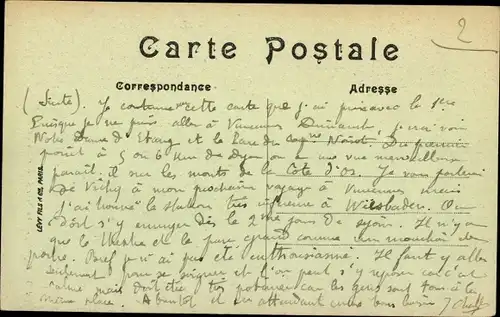 2
Carte Postale
Correspondance
Adresse
(Suite). Je continue sur cette carte que j'ai prise avec la 1ère
Puisque je ne puis aller à Vincennes Dimanche, j'irai voir
Notre Dame d'Etang et le Parc du Cap.ne Noirot. Du premier
point à 5 ou 6 km de Dijon on a une vue merveilleuse
paraît-il sur les monts de la Côte d'Or. Je vous parlerai
de Vichy à mon prochain voyage à Vincennes mais
j'ai trouvé la station très inférieure à Wiesbaden. On
doit s'y ennuyer dès le 2me jour de séjour. Il n'y a
que le théâtre et le parc grand comme un mouchoir de
poche. Bref je n'ai pas été enthousiasmé. Il faut y aller
seulement pour se soigner et l'on peut s'y reposer car c'est
calme mais doit être très car les gens sont tous à la
même place. A bientôt et en attendant entre bons baisers
LÉVY FILS & CIE, PARIS